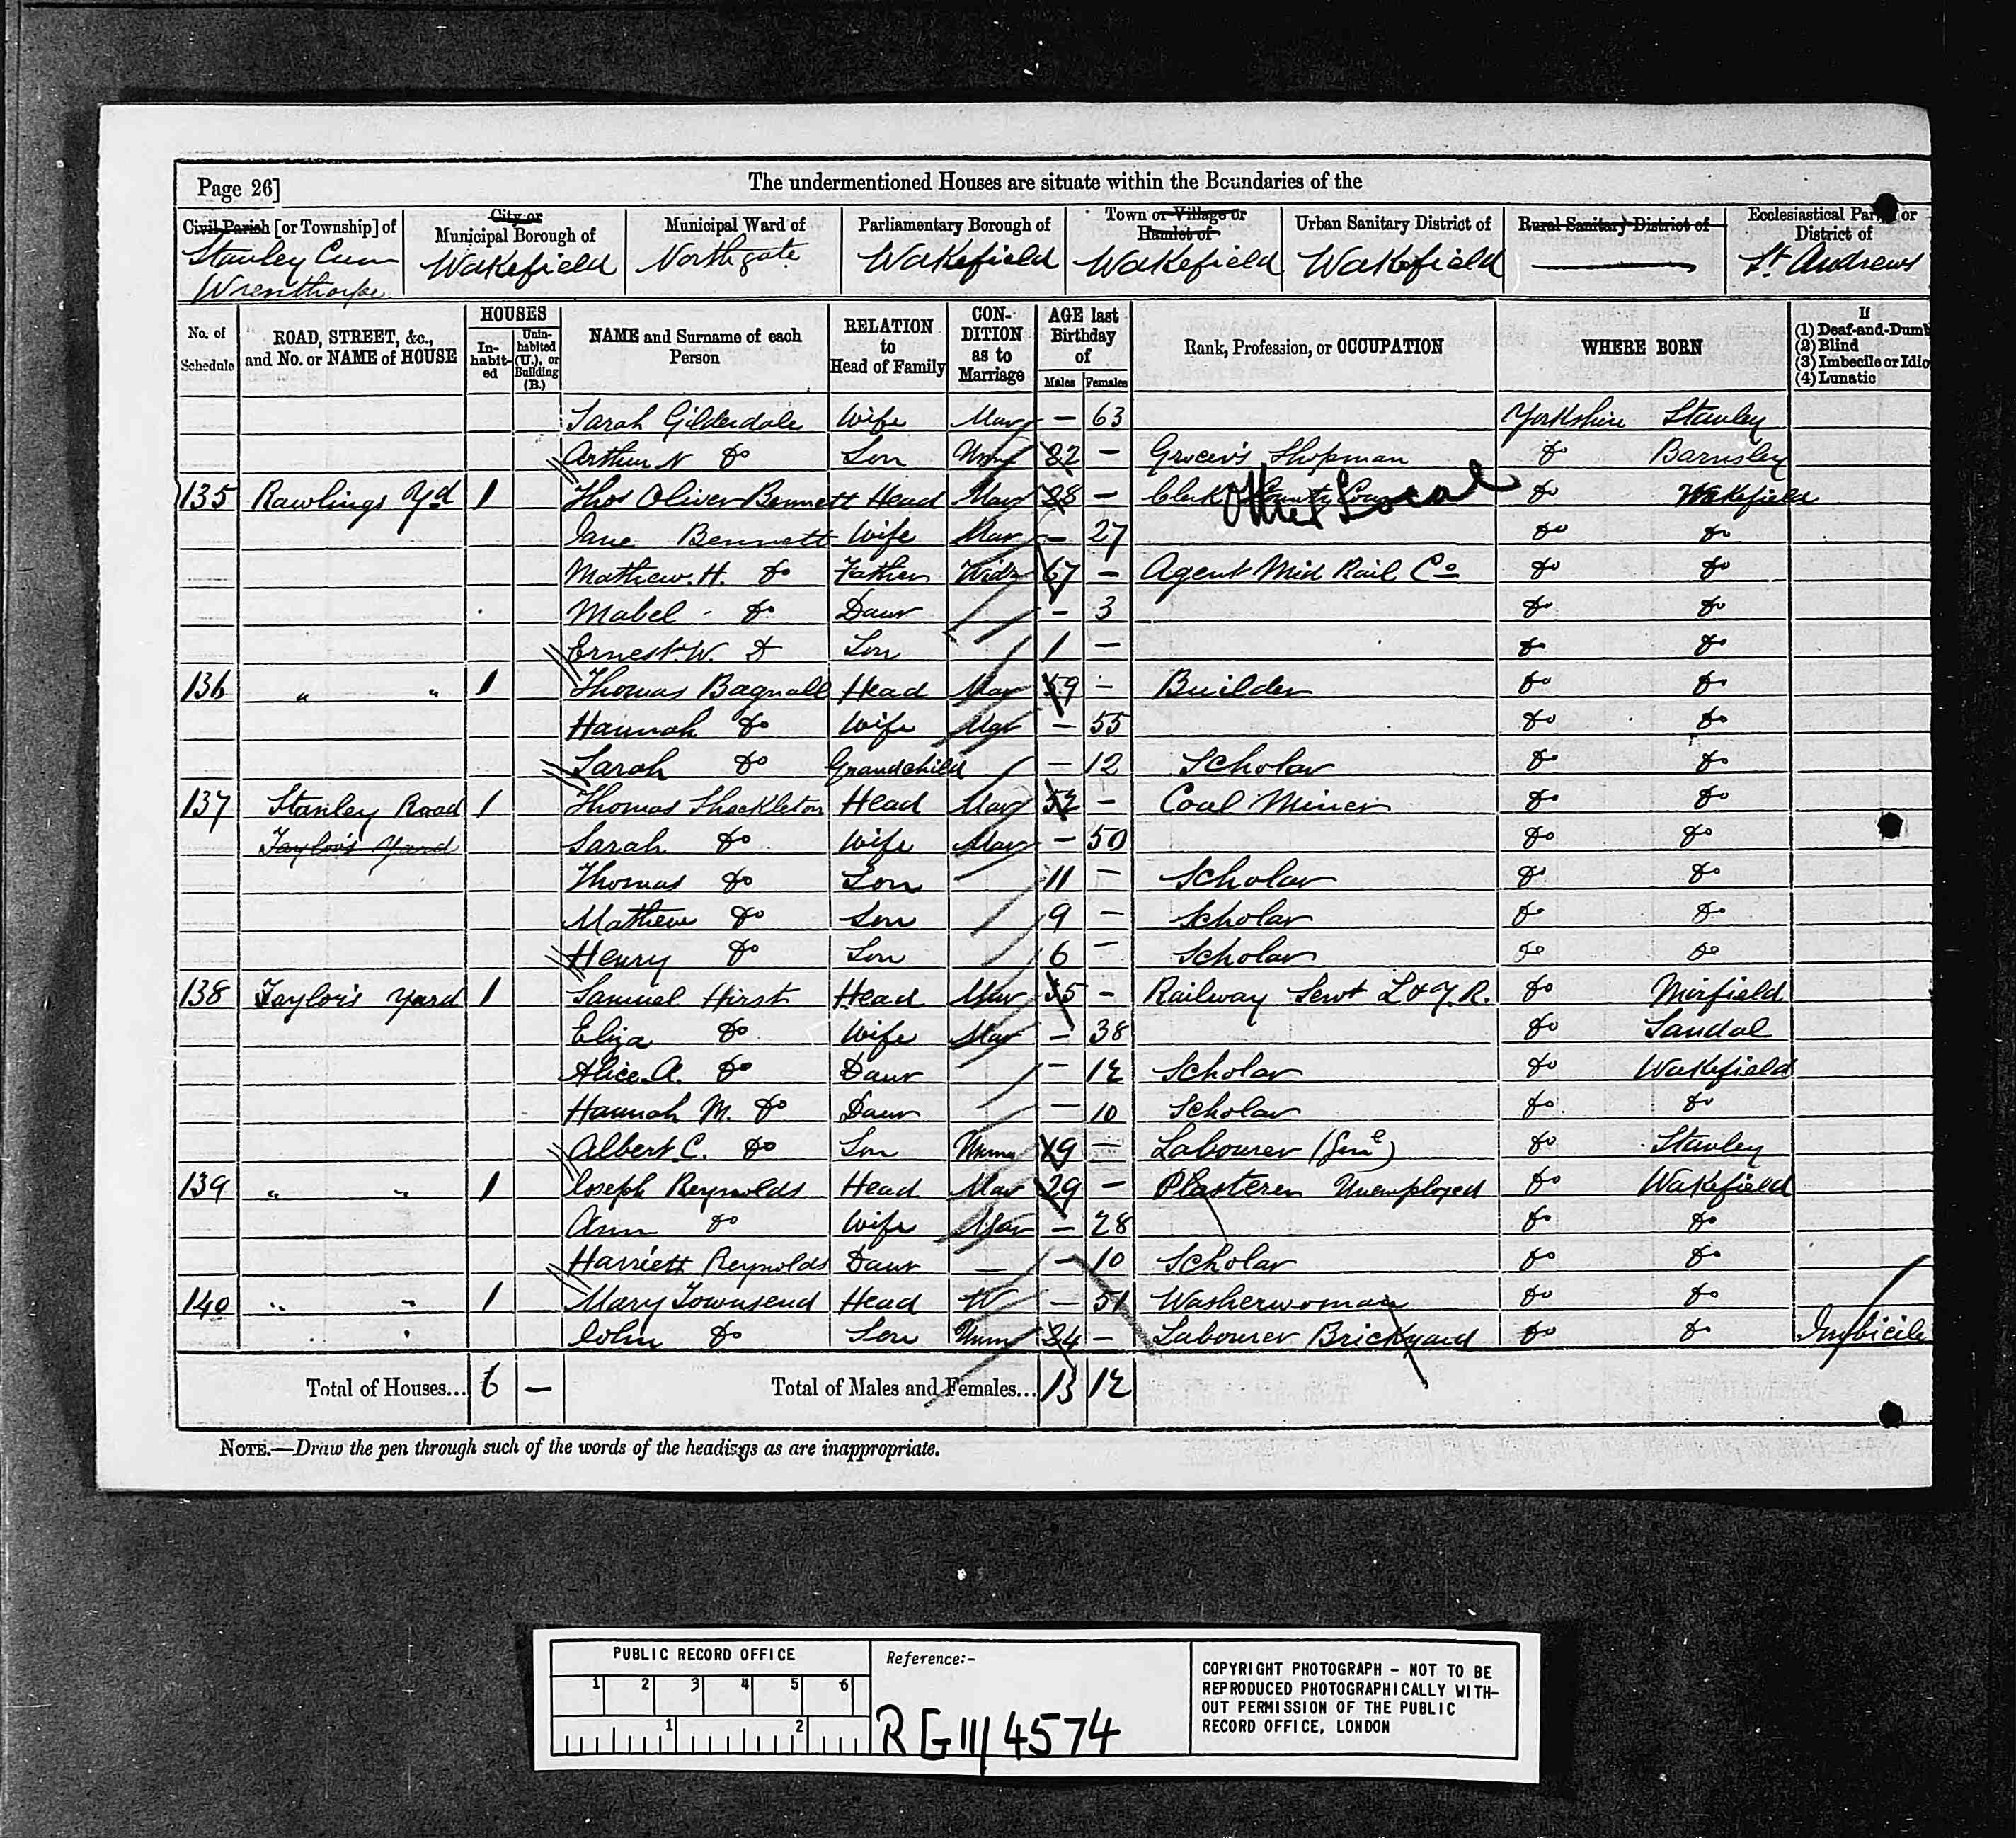 Page 26]
The undermentioned Houses are situate within the Boundaries of the
Civil Parish [or Township] of
City or Municipal Borough of
Municipal Ward of
Parliamentary Borough of
Town or Village or Hamlet of
Urban Sanitary District of
Rural Sanitary District of
Ecclesiastical Parish or District of
Stanley Cum Wrenthorpe
Wakefield
Northgate
Wakefield
Wakefield
Wakefield
St. Andrews
No. of Schedule
ROAD, STREET, &c., and No. or NAME of HOUSE
HOUSES
In-habit-ed
Unin-habited (U.), or Building (B.)
NAME and Surname of each Person
RELATION to Head of Family
CON-DITION as to Marriage
AGE last Birthday of
Males
Females
Rank, Profession, or OCCUPATION
WHERE BORN
If
(1) Deaf-and-Dumb
(2) Blind
(3) Imbecile or Idio
(4) Lunatic
Sarah Gilderdale Wife Mar — 63 Yorkshire Stanley
Arthur N do Son Unm 22 — Grocer's Shopman do Barnsley
135 Rawlings Yd 1 Thos Oliver Bennett Head Mar 28 — Clerk County Other Local do Wakefield
Jane Bennett Wife Mar — 27 do do
Mathew. H. do Father Widr 67 — Agent Mid Rail Co do do
Mabel do Daur — 3 do do
Ernest. W. D Son 1 — do do
136 " " 1 Thomas Bagnall Head Mar 59 — Builder do do
Hannah do Wife Mar — 55 do do
Sarah do Grandchild — 12 Scholar do do
137 Stanley Road 1 Thomas Shackleton Head Mar 52 — Coal Miner do do
Taylor's Yard Sarah do Wife Mar — 50 do do
Thomas do Son 11 — Scholar do do
Mathew do Son 9 — Scholar do do
Henry do Son 6 — Scholar do do
138 Taylor's Yard 1 Samuel Hirst Head Mar 35 — Railway Servt L & Y. R. do Mirfield
Eliza do Wife Mar — 38 do Sandal
Alice. A. do Daur — 12 Scholar do Wakefield
Hannah M. do Daur — 10 Scholar do do
Albert. C. do Son Unm 19 — Labourer (Genl) do Stanley
139 " " 1 Joseph Reynolds Head Mar 29 — Plasterer Unemployed do Wakefield
Ann do Wife Mar — 28 do do
Harriett Reynolds Daur — — 10 Scholar do do
140 " " 1 Mary Townsend Head W — 51 Washerwoman do do
John do Son Unm 24 — Labourer Brickyard do do Imbicile
Total of Houses... 6 —
Total of Males and Females... 13 12
NOTE.—Draw the pen through such of the words of the headings as are inappropriate.
PUBLIC RECORD OFFICE
1 2 3 4 5 6
1 2
Reference:-
RG 11/4574
COPYRIGHT PHOTOGRAPH - NOT TO BE
REPRODUCED PHOTOGRAPHICALLY WITH-
OUT PERMISSION OF THE PUBLIC
RECORD OFFICE, LONDON